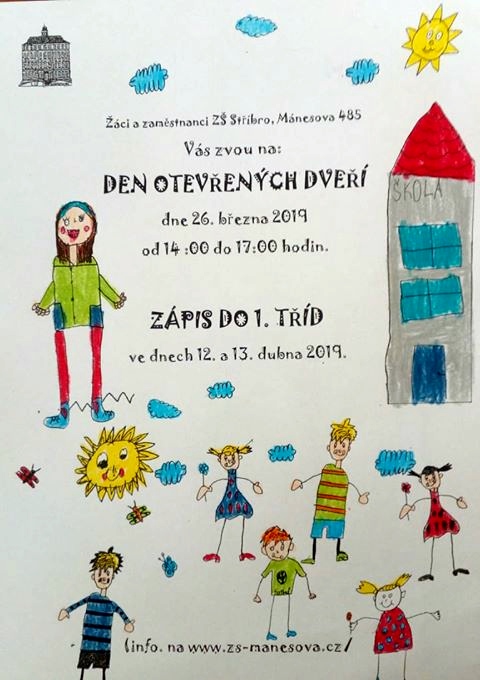 Žáci a zaměstnanci ZŠ Stříbro, Mánesova 485
Vás zvou na:
DEN OTEVŘENÝCH DVEŘÍ
dne 26. března 2019
od 14 :00 do 17:00 hodin.
ŠKOLA
ZÁPIS DO 1. TŘÍD
ve dnech 12. a 13. dubna 2019.
Info. na www.zs-manesova.cz